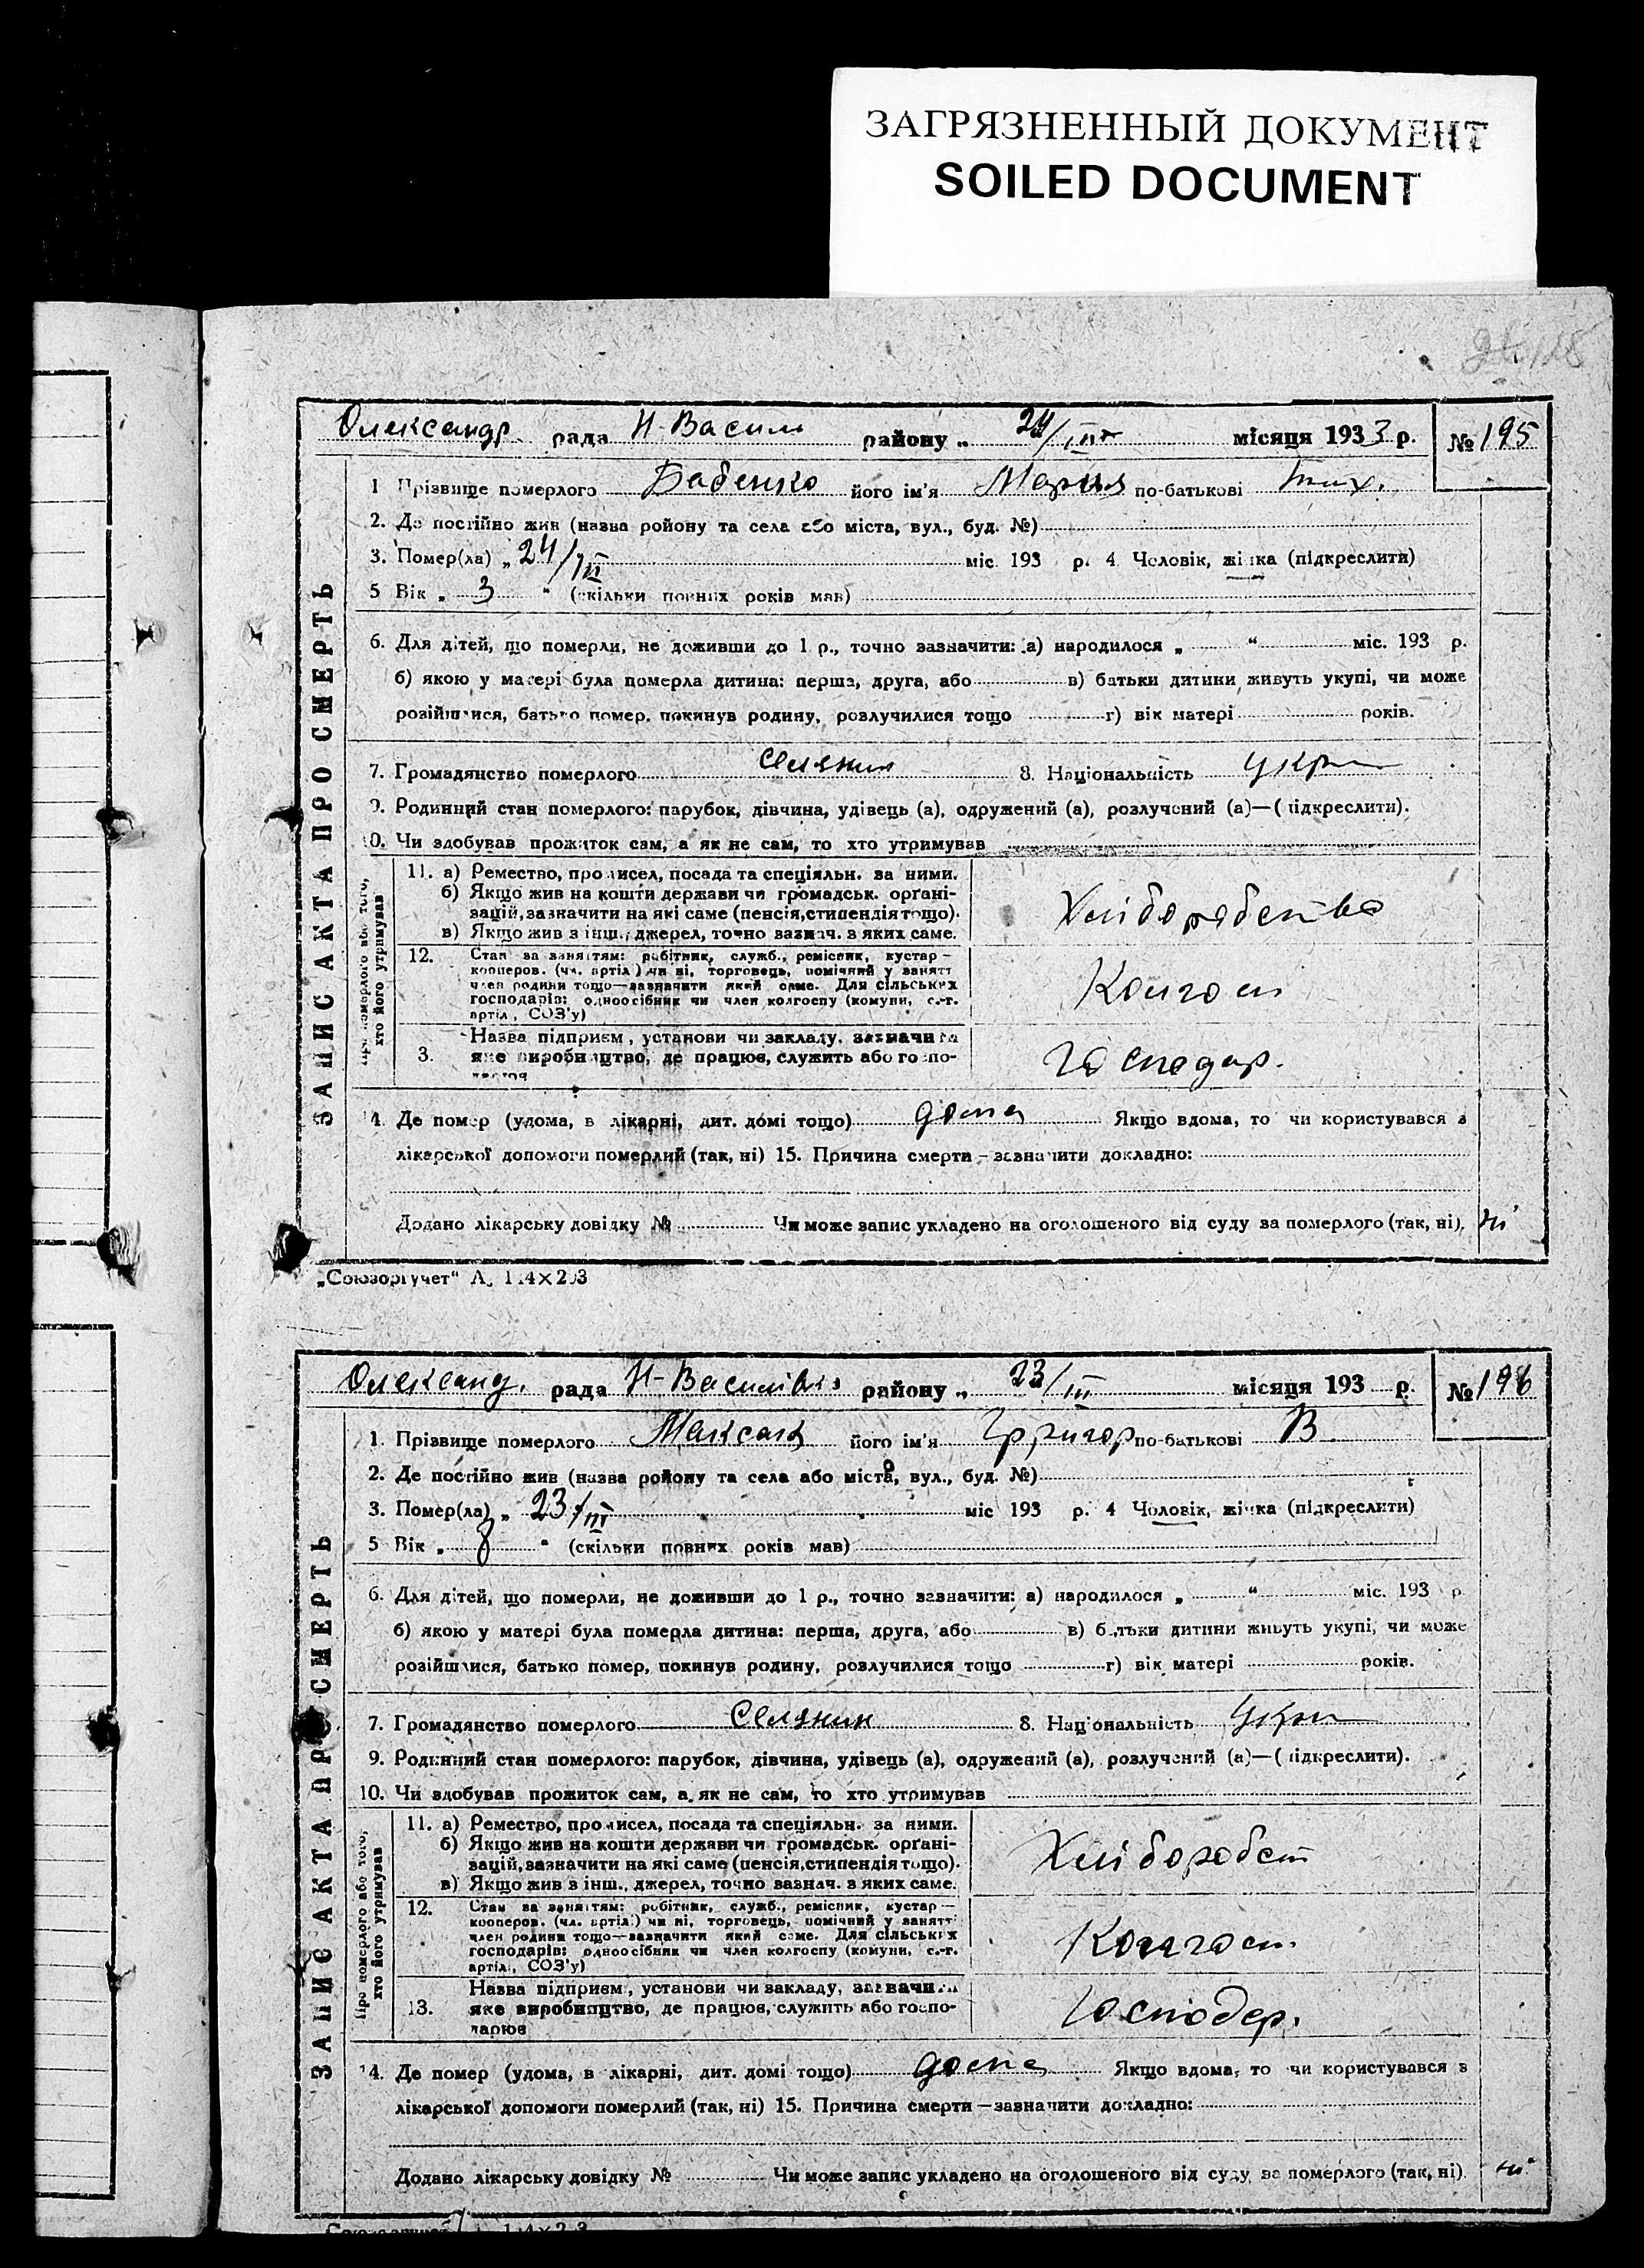 ЗАГРЯЗНЕННЫЙ ДОКУМЕНТ
SOILED DOCUMENT
Олександр. рада Н-Васил району „ 24/III місяця 1933 р. № 195
ЗАПИС АКТА ПРО СМЕРТЬ
1 Прізвище померлого Бабенко його ім'я Мария по-батькові Тих.
2. Де постійно жив (назва ройону та села або міста, вул., буд. №)
3. Помер(ла) „ 24/III міс. 193 р. 4 Чоловік, жінка (підкреслити)
5 Вік „ 3 “ (скільки повних років мав)
6. Для дітей, що померли, не доживши до 1 р., точно зазначити: а) народилося „ “ міс. 193 р.
б) якою у матері була померла дитина: перша, друга, або в) батьки дитини живуть укупі, чи може
розійшлися, батько помер, покинув родину, розлучилися тощо г) вік матері років.
7. Громадянство померлого Селянин 8. Національність Укр
9. Родинний стан померлого: парубок, дівчина, удівець (а), одружений (а), розлучений (а)—(підкреслити).
10. Чи здобував прожиток сам, а як не сам, то хто утримував
Про померлого або того, хто його утримував
11. а) Ремество, промисел, посада та спеціяльн. за ними.
б) Якщо жив на кошти держави чи громадськ. орґані-
зацій, зазначити на які саме (пенсія, стипендія тощо).
в) Якщо жив з інш., джерел, точно зазнач. з яких саме.
Хліборобство
12. Стан за заняттям: робітник, служб., ремісник, кустар—
кооперов. (чл. артіл) чи ні, торговець, помічний у занятт
член родини тощо—зазначити який саме. Для сільських
господарів: одноосібник чи член колгоспу (комуни, с.-г.
артіл, СОЗ'у)
Колгосп
13. Назва підприєм, установи чи закладу, зазначити
яке виробництво, де працює, служить або госпо-
дарює
Господар.
14. Де помер (удома, в лікарні, дит. домі тощо) дома Якщо вдома, то чи користувався з
лікарської допомоги померлий (так, ні) 15. Причина смерти—зазначити докладно:
Додано лікарську довідку № Чи може запис укладено на оголошеного від суду за померлого (так, ні). ні
„Союзоргучет“ А
Олександ. рада Н-Василівка району „ 23/III місяця 193 р. № 196
ЗАПИС АКТА ПРО СМЕРТЬ
1. Прізвище померлого Максак його ім'я Григор по-батькові В
2. Де постійно жив (назва ройону та села або міста, вул., буд. №)
3. Помер(ла) „ 23/III міс 193 р. 4 Чоловік, жінка (підкреслити)
5 Вік „ 8 “ (скільки повних років мав)
6. Для дітей, що померли, не доживши до 1 р., точно зазначити: а) народилося „ “ міс. 193 р.
б) якою у матері була померла дитина: перша, друга, або в) батьки дитини живуть укупі, чи може
розійшлися, батько помер, покинув родину, розлучилися тощо г) вік матері років.
7. Громадянство померлого Селянин 8. Національність Укр
9. Родинний стан померлого: парубок, дівчина, удівець (а), одружений (а), розлучений (а)—(підкреслити).
10. Чи здобував прожиток сам, а як не сам, то хто утримував
Про померлого або того, хто його утримував
11. а) Ремество, промисел, посада та спеціяльн. за ними.
б) Якщо жив на кошти держави чи громадськ. орґані-
зацій, зазначити на які саме (пенсія, стипендія тощо).
в) Якщо жив з інш., джерел, точно зазнач. з яких саме.
Хліборобст
12. Стан за заняттям: робітник, служб., ремісник, кустар—
кооперов. (чл. артіл) чи ні, торговець, помічний у занятт
член родини тощо—зазначити який саме. Для сільських
господарів: одноосібник чи член колгоспу (комуни, с.-г.
артіл, СОЗ'у)
Колгосп
13. Назва підприєм, установи чи закладу, зазначити
яке виробництво, де працює, служить або госпо-
дарює
Господар.
14. Де помер (удома, в лікарні, дит. домі тощо) дома Якщо вдома, то чи користувався з
лікарської допомоги померлий (так, ні) 15. Причина смерти—зазначити докладно:
Додано лікарську довідку № Чи може запис укладено на оголошеного від суду за померлого (так, ні). ні